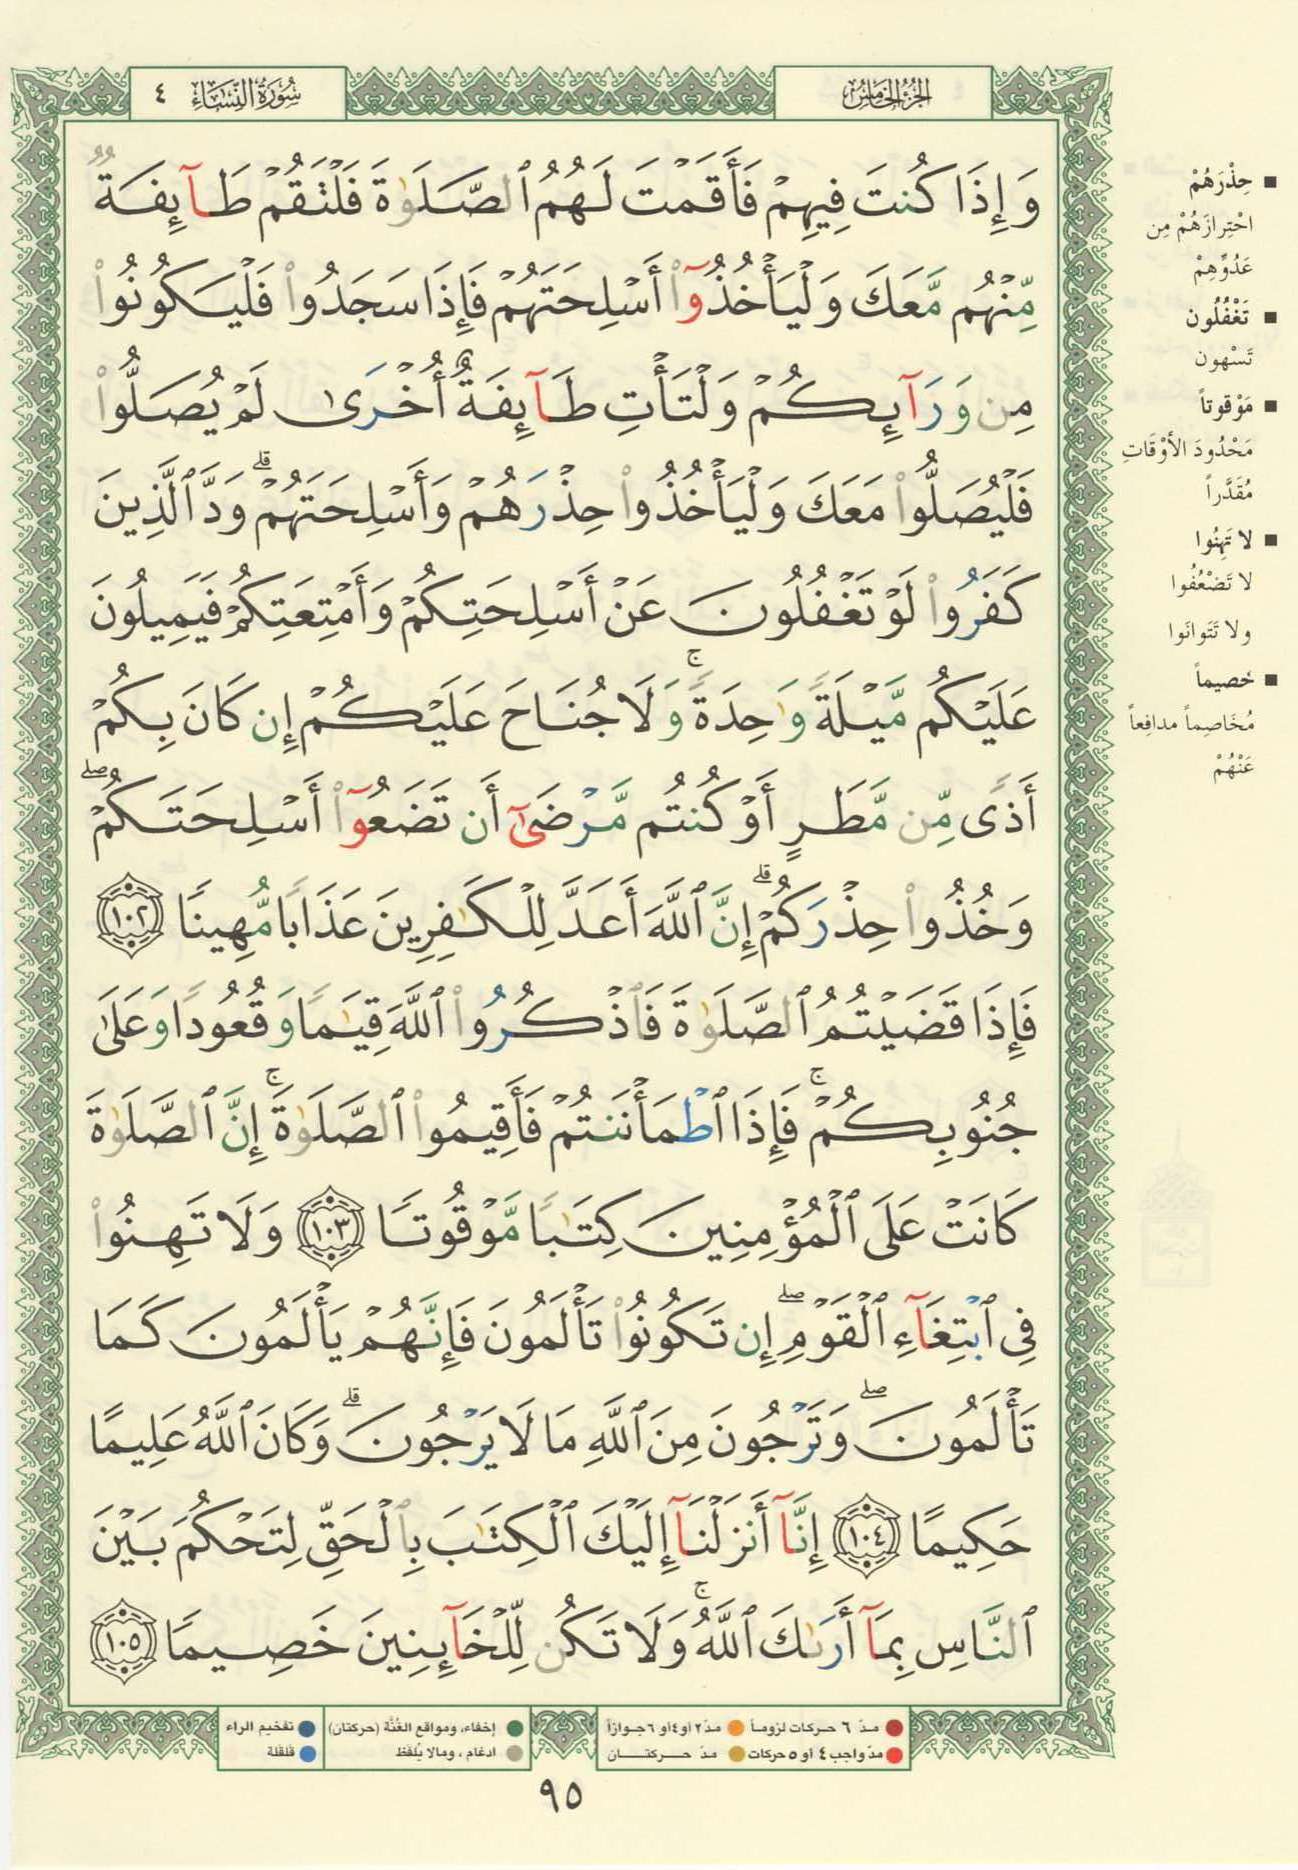 سُورَةُ النِّسَاءِ ٤
الجُزْءُ الخَامِسُ
وَإِذَا كُنتَ فِيهِمْ فَأَقَمْتَ لَهُمُ ٱلصَّلَوٰةَ فَلْتَقُمْ طَآئِفَةٌ
مِّنْهُم مَّعَكَ وَلْيَأْخُذُوٓا۟ أَسْلِحَتَهُمْ فَإِذَا سَجَدُوا۟ فَلْيَكُونُوا۟
مِن وَرَآئِكُمْ وَلْتَأْتِ طَآئِفَةٌ أُخْرَىٰ لَمْ يُصَلُّوا۟
فَلْيُصَلُّوا۟ مَعَكَ وَلْيَأْخُذُوا۟ حِذْرَهُمْ وَأَسْلِحَتَهُمْ ۗ وَدَّ ٱلَّذِينَ
كَفَرُوا۟ لَوْ تَغْفُلُونَ عَنْ أَسْلِحَتِكُمْ وَأَمْتِعَتِكُمْ فَيَمِيلُونَ
عَلَيْكُم مَّيْلَةً وَٰحِدَةً ۚ وَلَا جُنَاحَ عَلَيْكُمْ إِن كَانَ بِكُمْ
أَذًى مِّن مَّطَرٍ أَوْ كُنتُم مَّرْضَىٰٓ أَن تَضَعُوٓا۟ أَسْلِحَتَكُمْ ۖ
وَخُذُوا۟ حِذْرَكُمْ ۗ إِنَّ ٱللَّهَ أَعَدَّ لِلْكَـٰفِرِينَ عَذَابًا مُّهِينًا ١٠٢
فَإِذَا قَضَيْتُمُ ٱلصَّلَوٰةَ فَٱذْكُرُوا۟ ٱللَّهَ قِيَـٰمًا وَقُعُودًا وَعَلَىٰ
جُنُوبِكُمْ ۚ فَإِذَا ٱطْمَأْنَنتُمْ فَأَقِيمُوا۟ ٱلصَّلَوٰةَ ۚ إِنَّ ٱلصَّلَوٰةَ
كَانَتْ عَلَى ٱلْمُؤْمِنِينَ كِتَـٰبًا مَّوْقُوتًا ١٠٣ وَلَا تَهِنُوا۟
فِى ٱبْتِغَآءِ ٱلْقَوْمِ ۖ إِن تَكُونُوا۟ تَأْلَمُونَ فَإِنَّهُمْ يَأْلَمُونَ كَمَا
تَأْلَمُونَ ۖ وَتَرْجُونَ مِنَ ٱللَّهِ مَا لَا يَرْجُونَ ۗ وَكَانَ ٱللَّهُ عَلِيمًا
حَكِيمًا ١٠٤ إِنَّآ أَنزَلْنَآ إِلَيْكَ ٱلْكِتَـٰبَ بِٱلْحَقِّ لِتَحْكُمَ بَيْنَ
ٱلنَّاسِ بِمَآ أَرَىٰكَ ٱللَّهُ ۚ وَلَا تَكُن لِّلْخَآئِنِينَ خَصِيمًا ١٠٥
■ حِذْرَهُمْ
احْتِرازَهُمْ مِن
عَدُوِّهِمْ
■ تَغْفُلُون
تَسْهون
■ مَوْقوتاً
مَحْدُودَ الأوْقَاتِ
مُقَدَّراً
■ لا تَهِنُوا
لا تَضْعُفُوا
ولا تَتَوانَوا
■ خَصيماً
مُخَاصِماً مدافِعاً
عَنْهُمْ
مدّ ٦ حركات لزوماً
مدّ ٢ أو ٤ أو ٦ جوازاً
مدّ واجب ٤ أو ٥ حركات
مدّ حركتان
إخفاء، ومواقع الغُنَّة (حركتان)
ادغام، وما لا يُلفظ
تفخيم الراء
قلقلة
٩٥